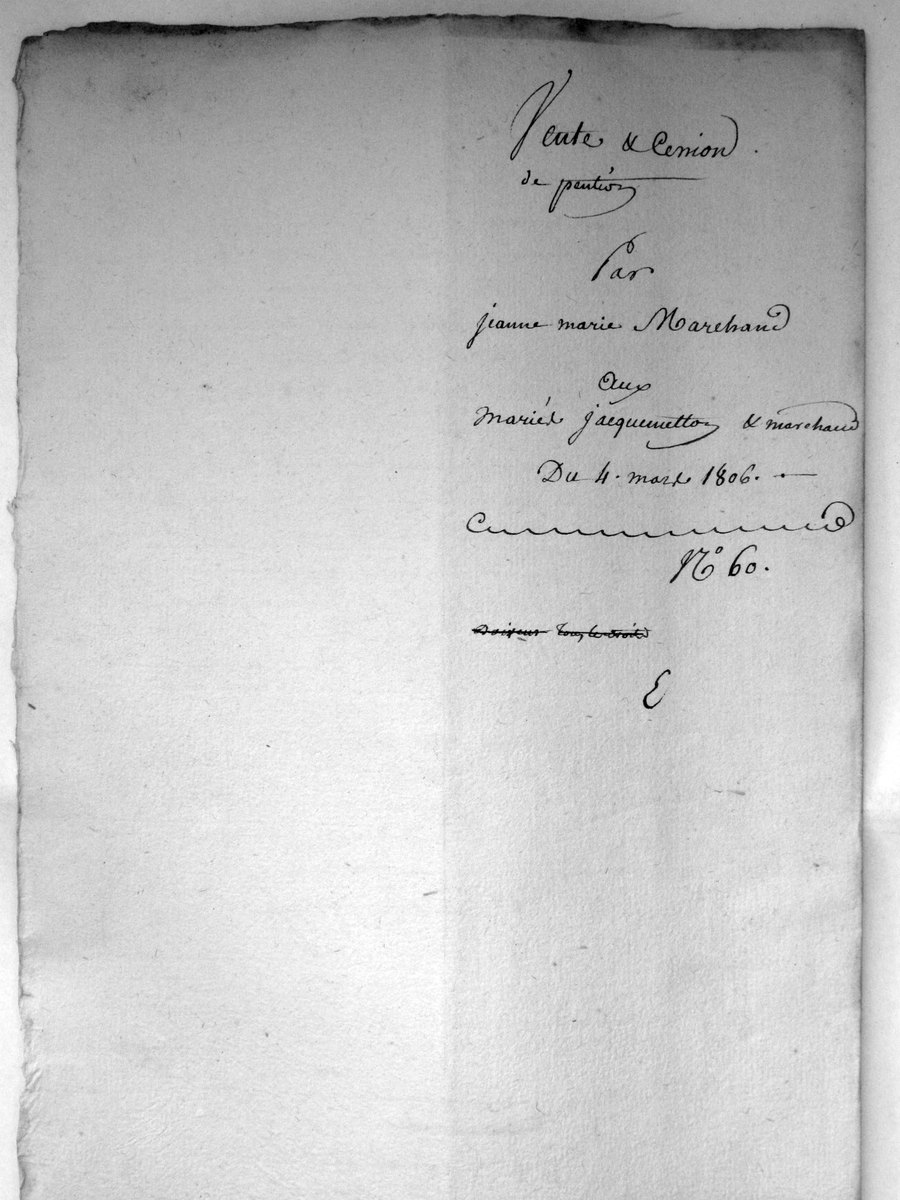 Vente & Cession
de pention
Par
jeanne marie Marchand
aux
mariés jacquemetton & marchand
Du 4. mars 1806.
N° 60.
Doivent tous les droits
E